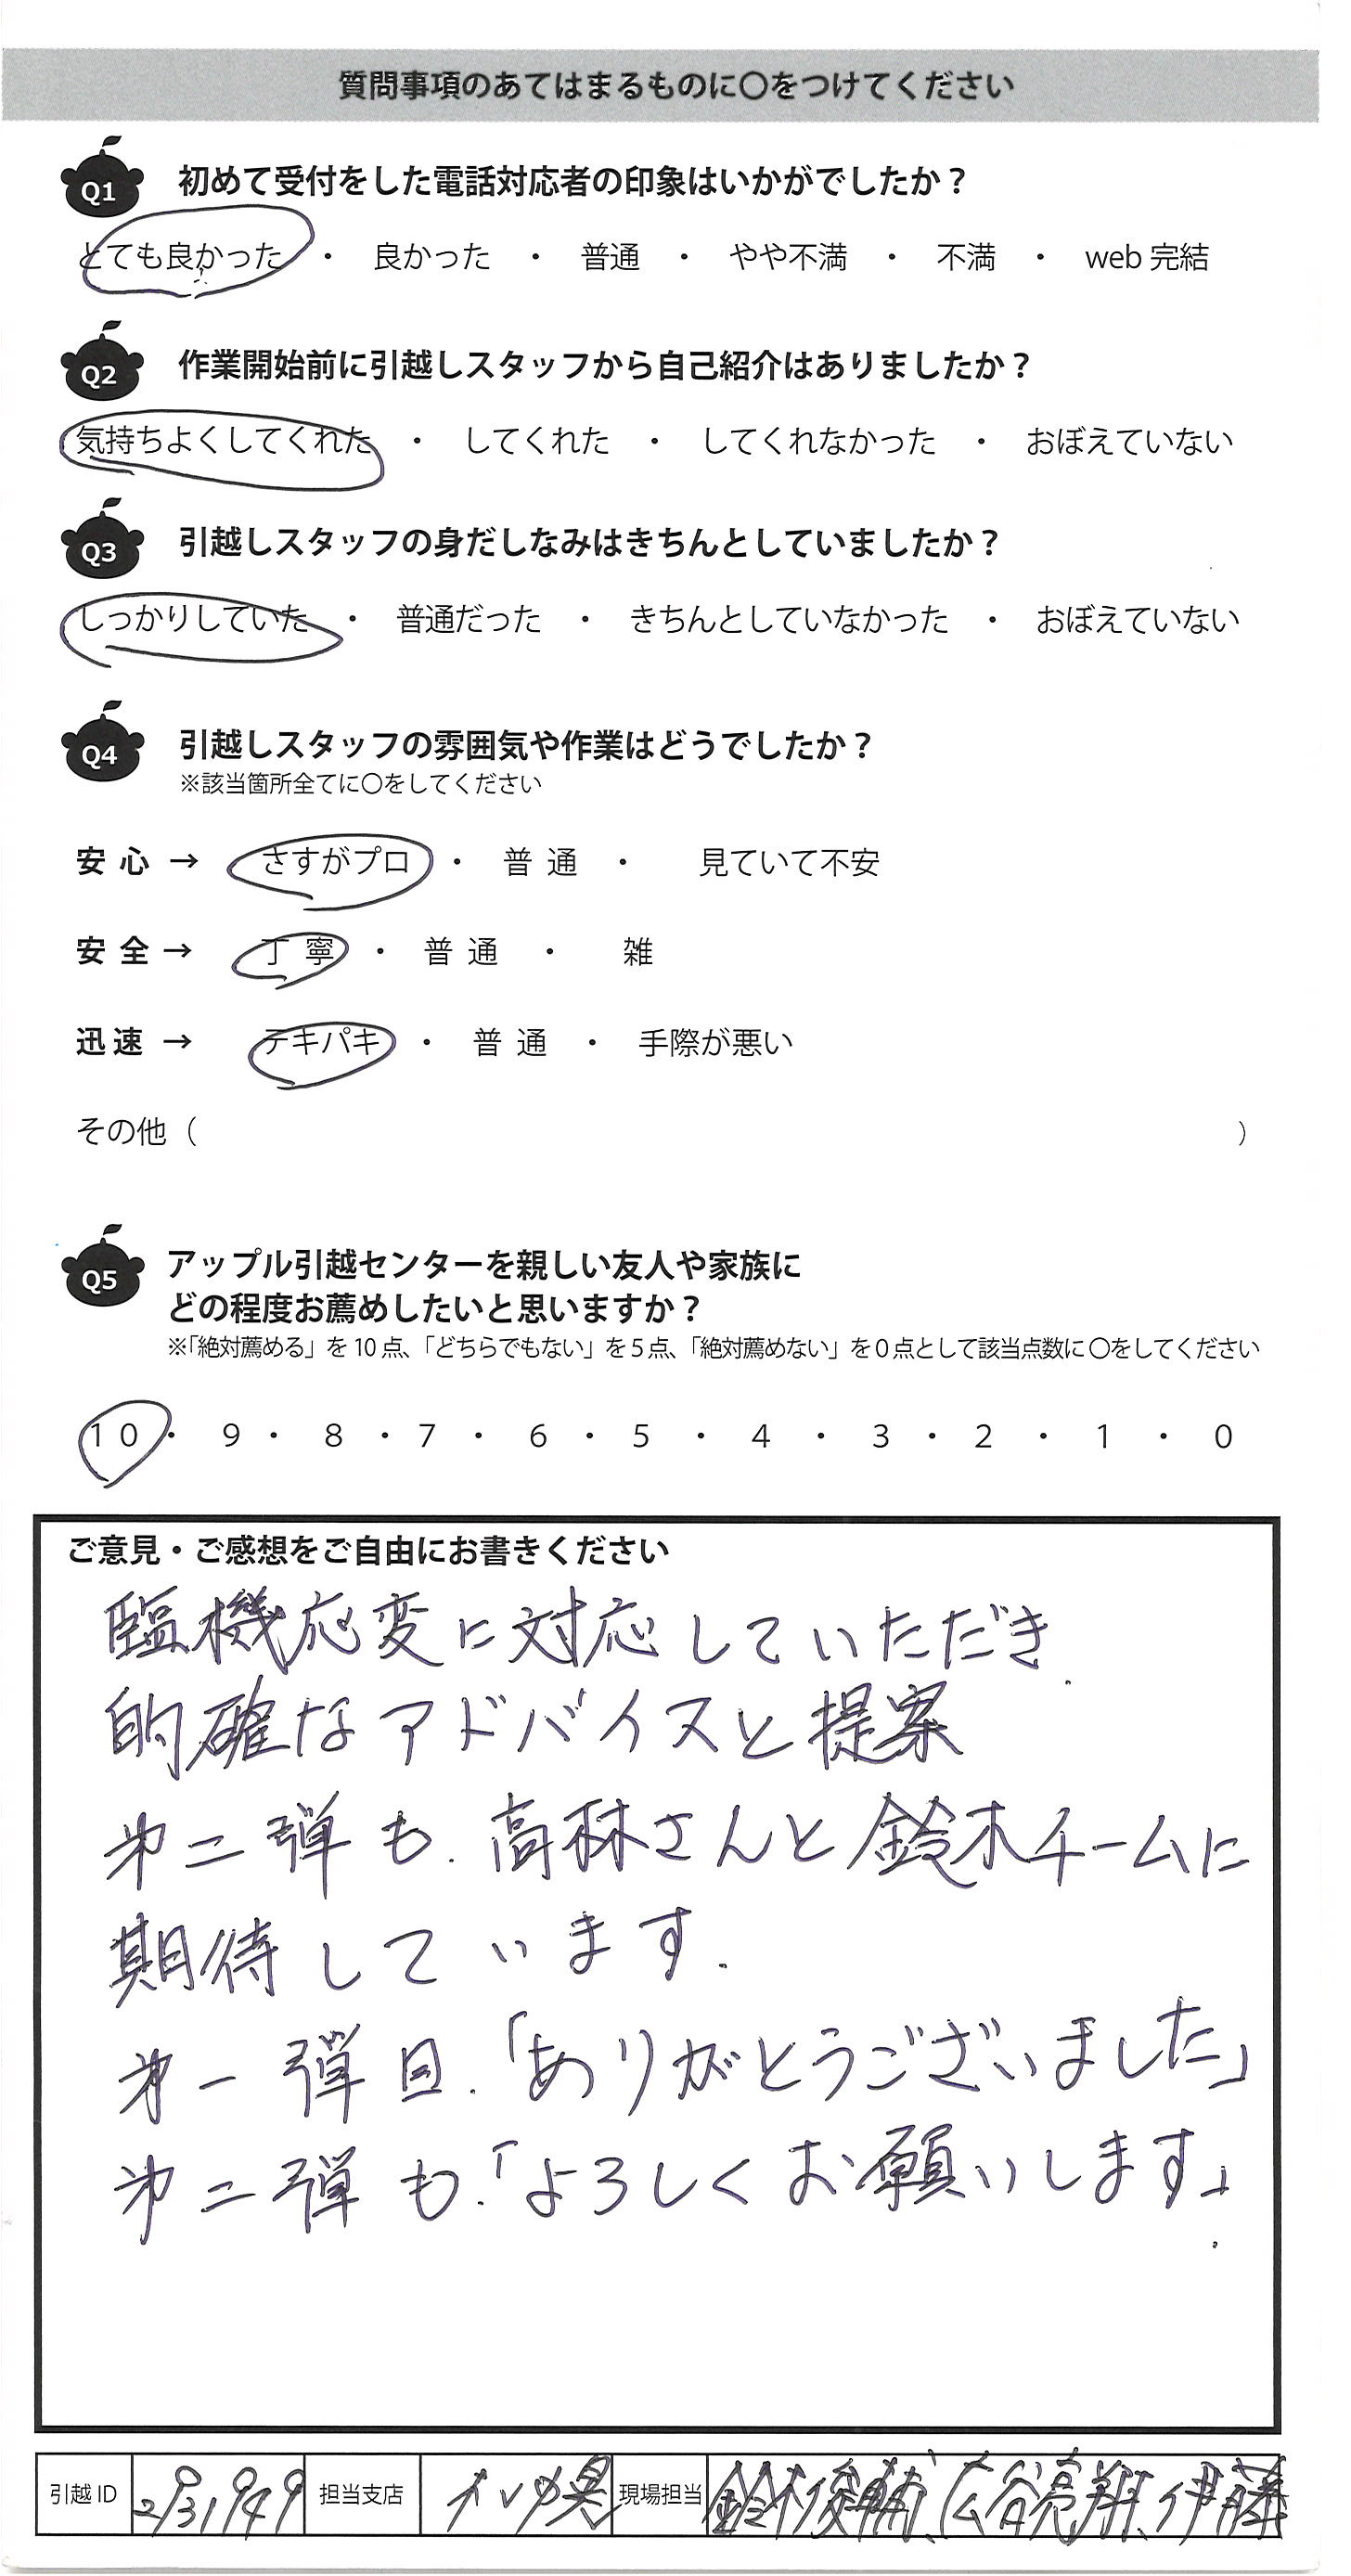 質問事項のあてはまるものに〇をつけてください
Q1 初めて受付をした電話対応者の印象はいかがでしたか？
とても良かった ・ 良かった ・ 普通 ・ やや不満 ・ 不満 ・ web 完結
Q2 作業開始前に引越しスタッフから自己紹介はありましたか？
気持ちよくしてくれた ・ してくれた ・ してくれなかった ・ おぼえていない
Q3 引越しスタッフの身だしなみはきちんとしていましたか？
しっかりしていた ・ 普通だった ・ きちんとしていなかった ・ おぼえていない
Q4 引越しスタッフの雰囲気や作業はどうでしたか？
※該当箇所全てに〇をしてください
安心 → さすがプロ ・ 普通 ・ 見ていて不安
安全 → 丁寧 ・ 普通 ・ 雑
迅速 → テキパキ ・ 普通 ・ 手際が悪い
その他（ ）
Q5 アップル引越センターを親しい友人や家族に
どの程度お薦めしたいと思いますか？
※「絶対薦める」を 10 点、「どちらでもない」を 5 点、「絶対薦めない」を 0 点として該当点数に 〇をしてください
10 ・ 9 ・ 8 ・ 7 ・ 6 ・ 5 ・ 4 ・ 3 ・ 2 ・ 1 ・ 0
ご意見・ご感想をご自由にお書きください
臨機応変に対応していただき
的確なアドバイスと提案
㐧二弾も、高林さんと鈴木チームに
期待しています.
㐧一弾目.「ありがとうございました」
㐧二弾も.「よろしくお願いします」
引越 ID 担当支店 現場担当 鈴木俊輔、広谷亮翔、伊藤